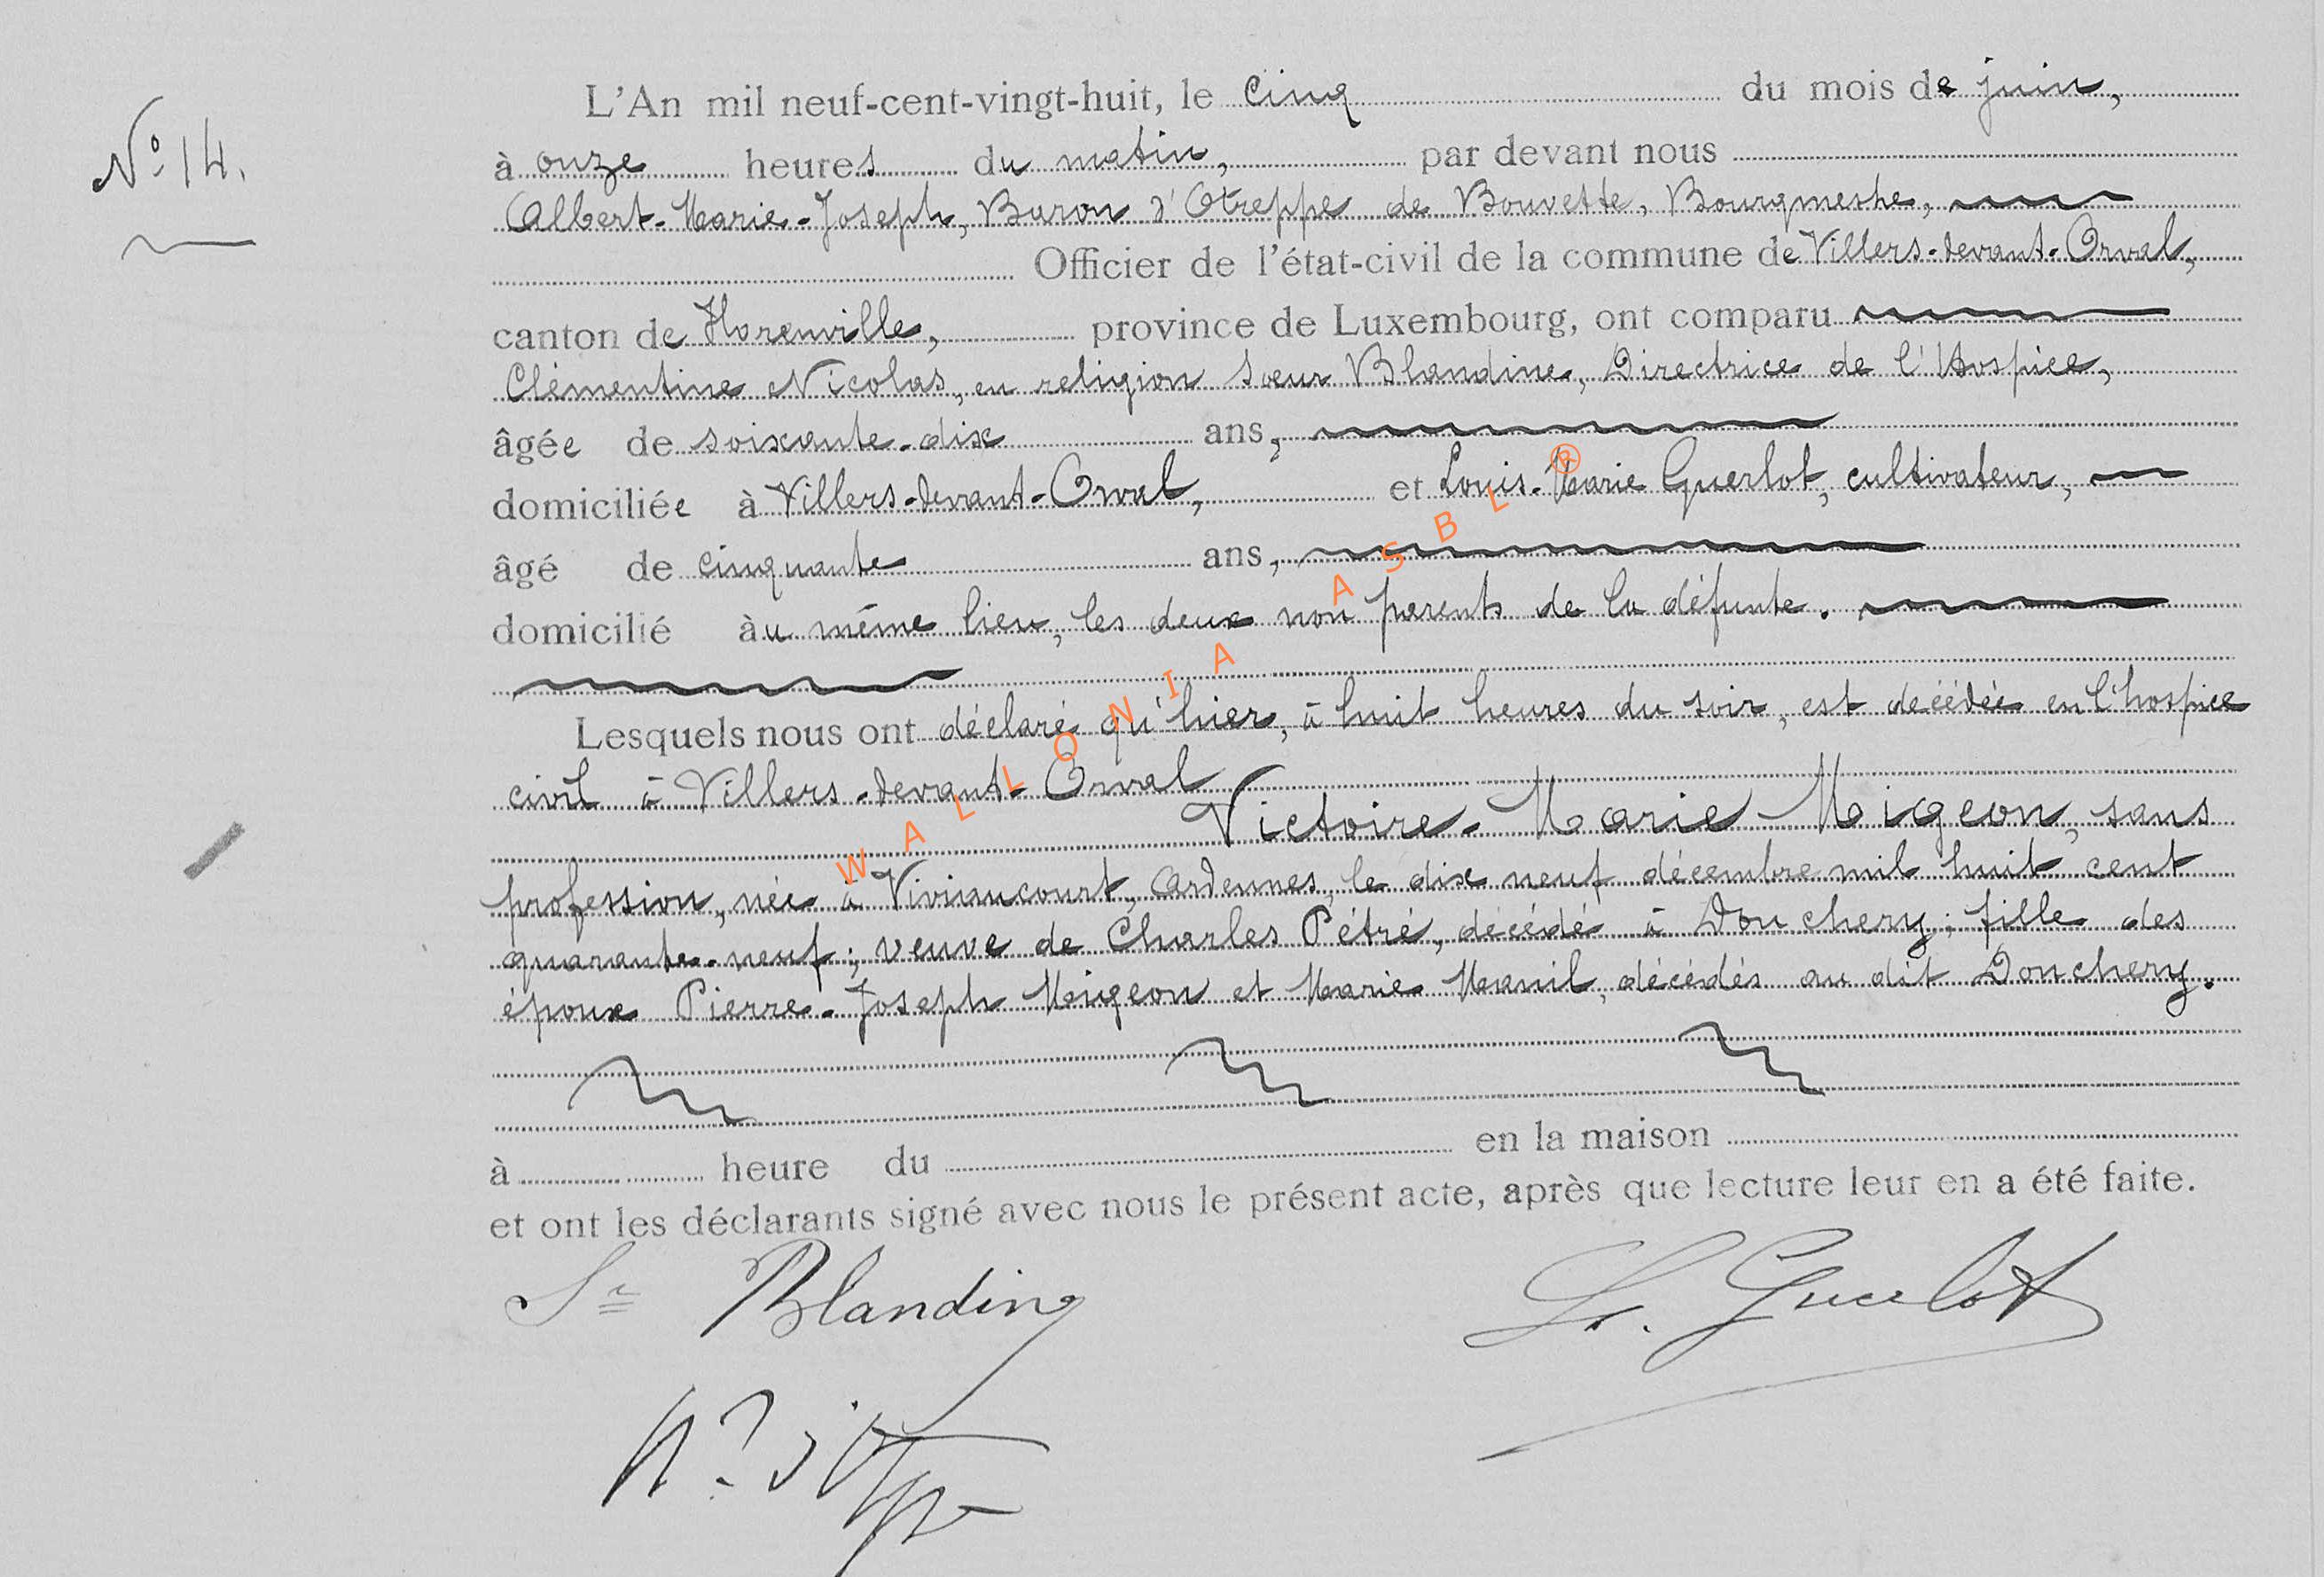 L'An mil neuf-cent-vingt-huit, le cinq du mois de juin,
N° 14.
à onze heures du matin, par devant nous
Albert-Marie-Joseph, Baron d'Otreppe de Bouvette, Bourgmestre,
Officier de l'état-civil de la commune de Villers-devant-Orval,
canton de Florenville, province de Luxembourg, ont comparu
Clémentine Nicolas, en religion sœur Blandine, Directrice de l'Hospice,
âgée de soixante-dix ans,
domiciliée à Villers-devant-Orval, et Louis-Marie Guerlot, cultivateur,
âgé de cinquante ans,
domicilié àu même lieu, les deux non parents de la défunte.
Lesquels nous ont déclaré qu'hier, à huit heures du soir, est décédée en l'hospice
civil à Villers-devant-Orval
Victoire-Marie Migeon, sans
profession, née à Viviaucourt, Ardennes, le dix neuf décembre mil huit cent
quarante-neuf; veuve de Charles Pétré, décédé à Donchery; fille des
époux Pierre-Joseph Migeon et Marie Manil, décédés au dit Donchery.
à heure du en la maison
et ont les déclarants signé avec nous le présent acte, après que lecture leur en a été faite.
Sr Blandine L. Guerlot
WALLONIA ASBL ®